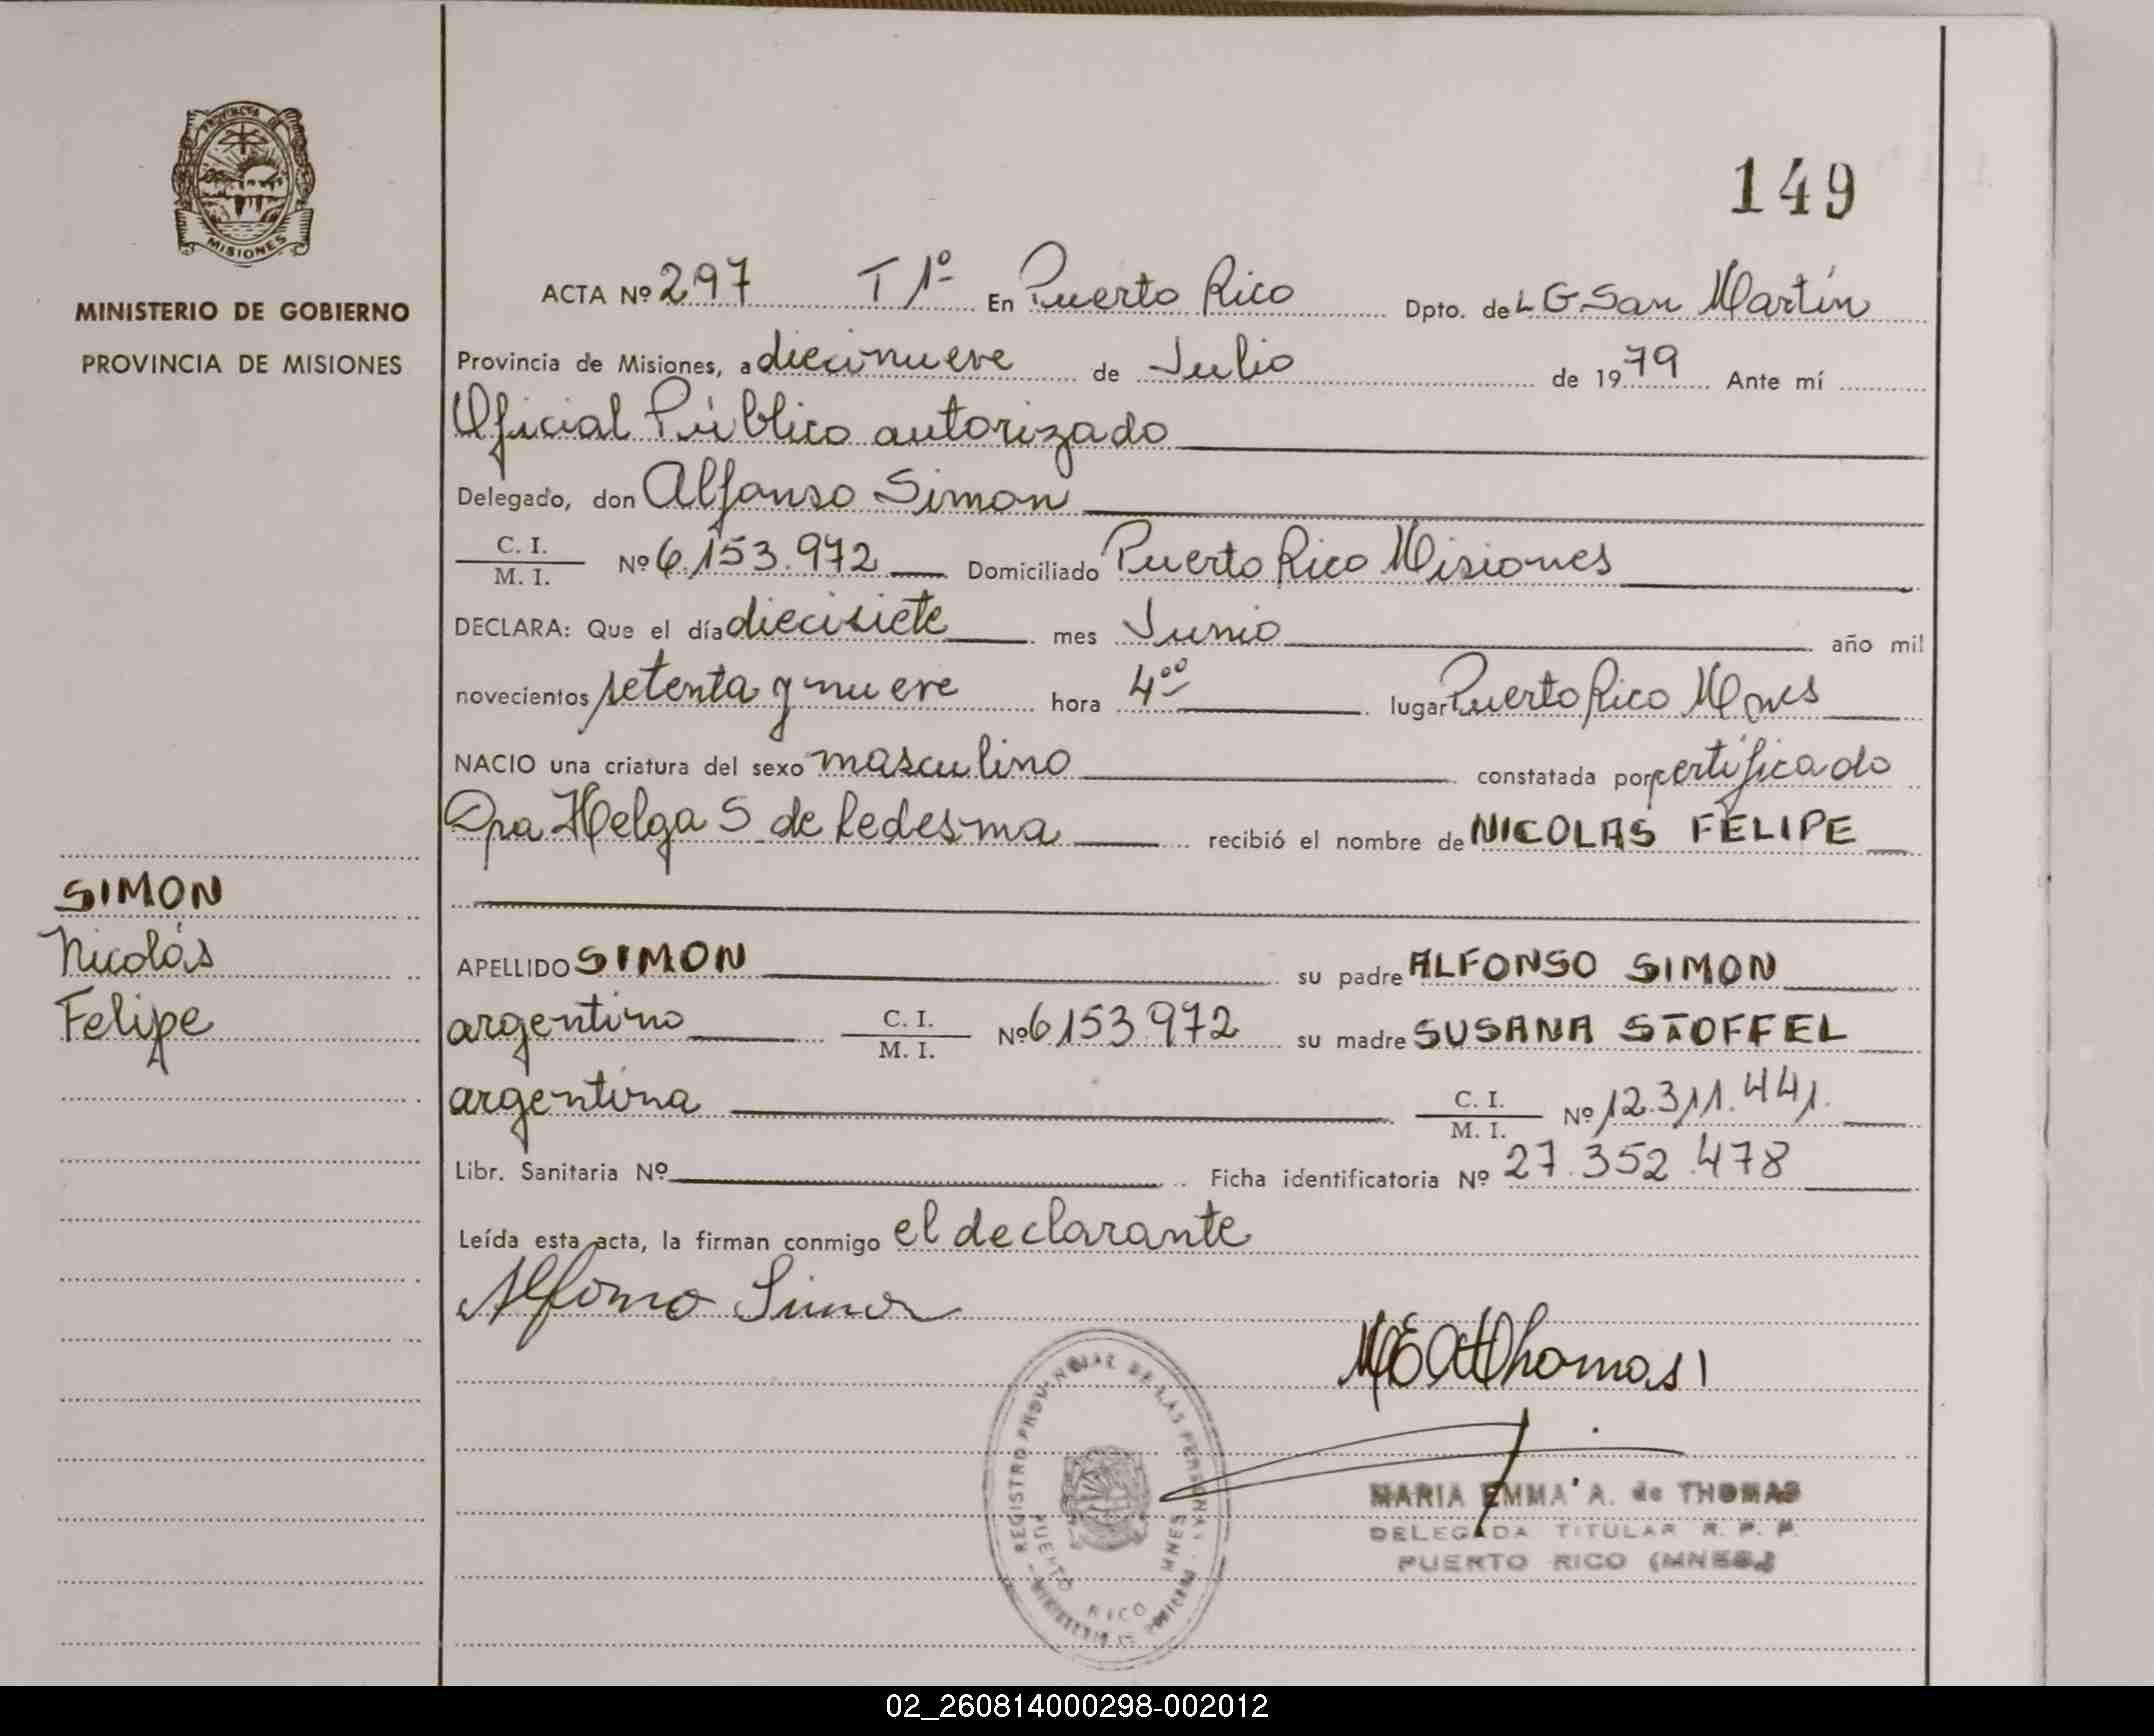 PROVINCIA DE
MISIONES
MINISTERIO DE GOBIERNO
PROVINCIA DE MISIONES
SIMON
Nicolás
Felipe
149
ACTA Nº 297 T 1º En Puerto Rico Dpto. de L G San Martín
Provincia de Misiones, a diecinueve de Julio de 1979 Ante mí
Oficial Público autorizado
Delegado, don Alfonso Simon
C. I.
M. I. Nº 6.153.972 Domiciliado Puerto Rico Misiones
DECLARA: Que el día diecisiete mes Junio año mil
novecientos setenta y nueve hora 4ºº lugar Puerto Rico Mnes
NACIO una criatura del sexo masculino constatada por certificado
Dra Helga S de Ledesma recibió el nombre de NICOLAS FELIPE
APELLIDO SIMON su padre ALFONSO SIMON
argentino C. I.
M. I. Nº 6153.972 su madre SUSANA STOFFEL
argentina C. I.
M. I. Nº 12.311.441.
Libr. Sanitaria Nº Ficha identificatoria Nº 27.352.478
Leída esta acta, la firman conmigo el declarante
Alfonso Simon
MEAdThomas
REGISTRO PROVINCIAL DE LAS PERSONAS
PUERTO RICO MNES
MARIA EMMA A. de THOMAS
DELEGADA TITULAR R. P. P.
PUERTO RICO (MNES.)
02_260814000298-002012